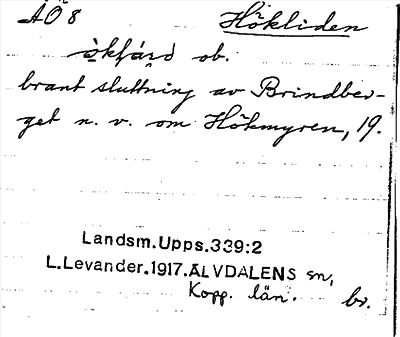 ÄÖ 8 Hökliden
ob.
brant sluttning av Brindber-
get n. v. om Hökmyren, 19.
Landsm.Upps.339:2
L.Levander.1917.ÄLVDALENS sn,
Kopp. län. br.